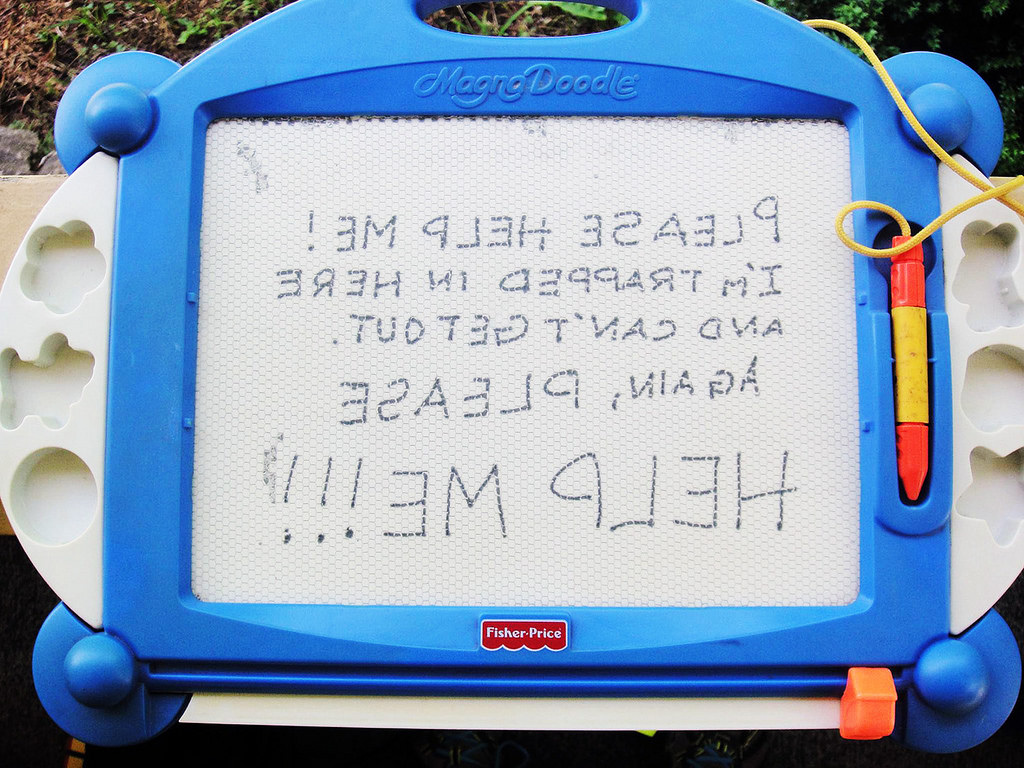 MagnaDoodle
PLEASE HELP ME!
I'M TRAPPED IN HERE
AND CAN'T GET OUT.
AGAIN, PLEASE
HELP ME!!!!
Fisher-Price